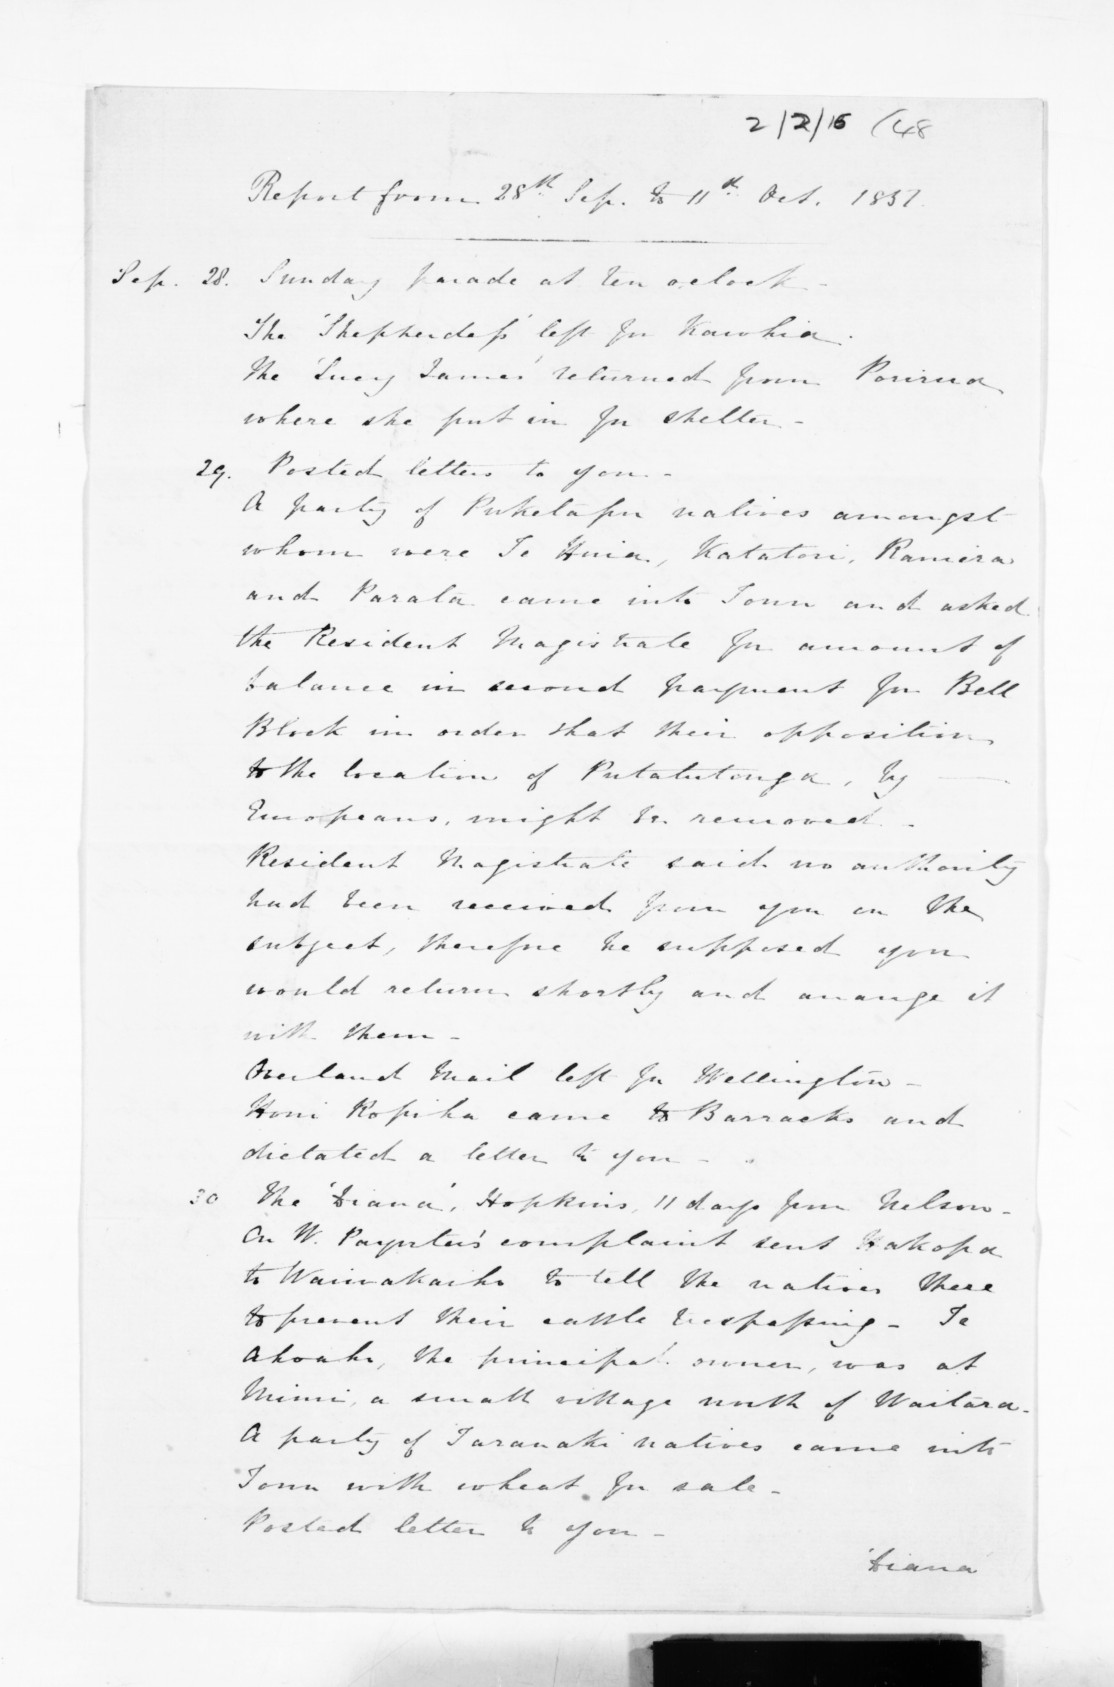 2/2/16 (48
Report from 28th Sep. to 11th Oct. 1851.
Sep. 28. Sunday parade at ten o'clock -
The 'Shepherdess' left for Kawhia.
The 'Lucy James' returned from Porirua
where she put in for shelter -
29. Posted letters to you -
A party of Puketapu natives amongst
whom were Te Huia, Katatori, Ramiera
and Parata came into Town and asked
the Resident Magistrate for amount of
balance in second payment for Bell
Block in order that their opposition
to the location of Putatutonga, by
Europeans, might be removed -
Resident Magistrate said no authority
had been received from you on the
subject, therefore he supposed you
would return shortly and arrange it
with them -
Overland Mail left for Wellington -
Honi Ropiha came to Barracks and
dictated a letter to you -
30 The 'Diana', Hopkins, 11 days from Nelson -
On W. Paynter's complaint sent Hakopa
to Waiwakaiho to tell the natives there
to prevent their cattle trespassing - Te
Ahoaho, the principal owner, was at
Mimi, a small village north of Waitara -
A party of Taranaki natives came into
Town with wheat for sale -
Posted letter to you -
'Diana'